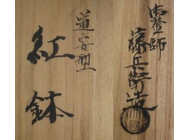 藤兵衛造
道安型
紅鉢